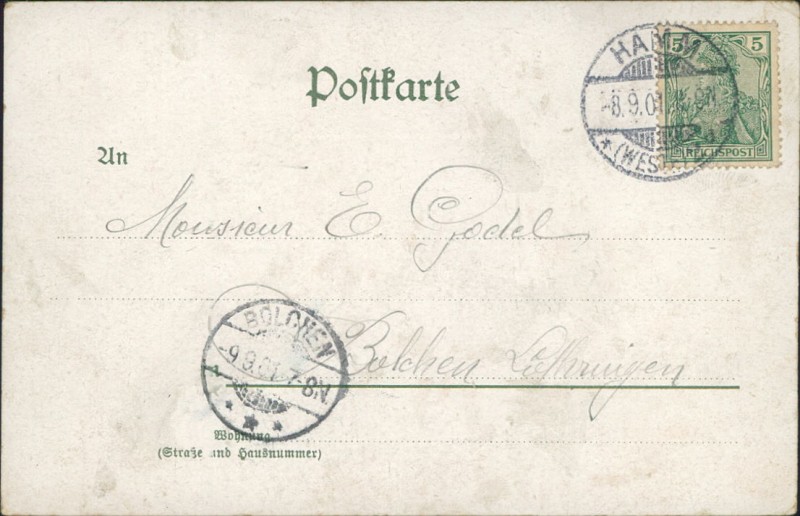 HAMM
5 5
-8.9.01
(WEST
REICHSPOST
Postkarte
An
Monsieur E. Godel
BOLCHEN
-9.9.01 7-8N
Bolchen Lothringen
Wohnung
(Straße und Hausnummer)